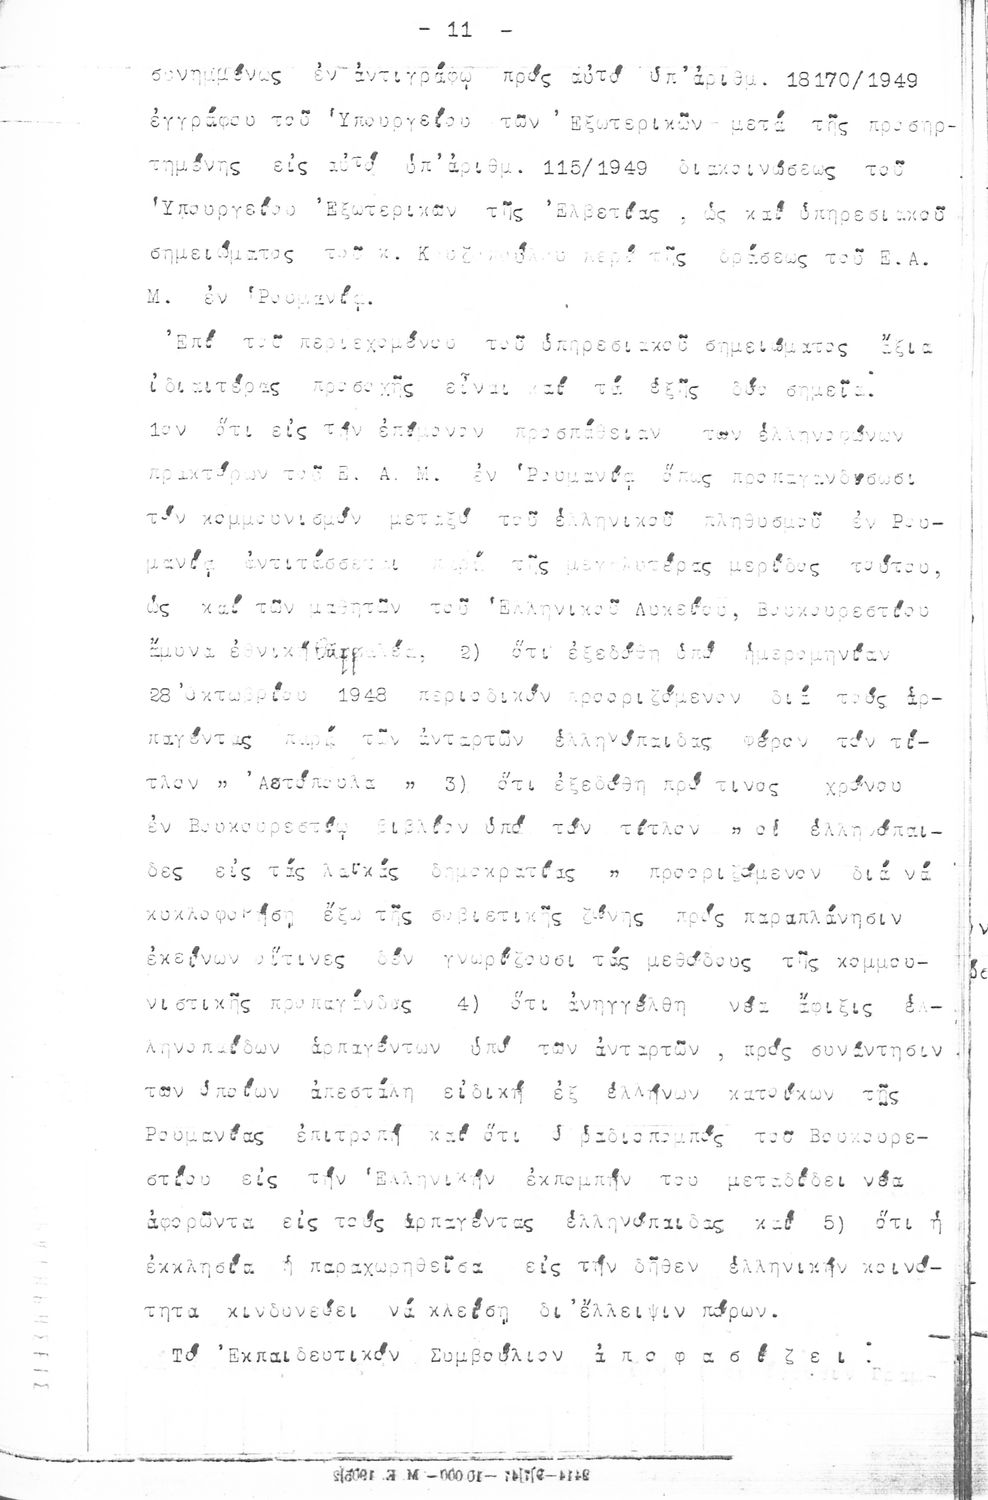 - 11 -
συνημμένως ἐν ἀντιγράφῳ πρός αὐτό ὑπ'ἀριθμ. 18170/1949
ἐγγράφου τοῦ Ὑπουργείου τῶν Ἐξωτερικῶν μετά τῆς προσηρ-
τημένης εἰς αὐτό ὑπ'ἀριθμ. 115/1949 διακοινώσεως τοῦ
Ὑπουργείου Ἐξωτερικῶν τῆς Ἑλβετίας , ὡς καί ὑπηρεσιακοῦ
σημειώματος τοῦ κ. περί τῆς δράσεως τοῦ Ε.Α.
Μ. ἐν Ῥουμανίᾳ.
Ἐπί τοῦ περιεχομένου τοῦ ὑπηρεσιακοῦ σημειώματος ἄξια
ἰδιαιτέρας προσοχῆς εἶναι καί τά ἑξῆς δύο σημεῖα:
1ον ὅτι εἰς τήν ἐπίμονον προσπάθειαν των ἑλληνοφώνων
πρακτόρων τοῦ Ε. Α. Μ. ἐν Ῥουμανίᾳ ὅπως προπαγανδίσωσι
τόν κομμουνισμόν μεταξύ τοῦ ἑλληνικοῦ πληθυσμοῦ ἐν Ρου-
μανίᾳ ἀντιτάσσεται παρά τῆς μεγαλυτέρας μερίδος τούτου,
ὡς καί τῶν μαθητῶν τοῦ Ἑλληνικοῦ Λυκείου, Βουκουρεστίου
ἄμυνα ἐθνική 2) ὅτι ἐξεδόθη ὑπό ἡμερομηνίαν
28 Ὀκτωβρίου 1948 περιοδικόν προοριζόμενον διά τούς ἁρ-
παγέντας παρά τῶν ἀνταρτῶν ἑλληνόπαιδας φέρον τόν τί-
τλον " Ἀετόπουλα " 3) ὅτι ἐξεδόθη πρό τινος χρόνου
ἐν Βουκουρεστίῳ βιβλίον ὑπό τόν τίτλον " οἱ ἑλληνόπαι-
δες εἰς τάς λαϊκάς δημοκρατίας " προοριζόμενον διά νά
κυκλοφορήσῃ ἔξω τῆς σοβιετικῆς ζώνης πρός παραπλάνησιν
ἐκείνων οἵτινες δέν γνωρίζουσι τάς μεθόδους τῆς κομμου-
νιστικῆς προπαγάνδας 4) ὅτι ἀνηγγέλθη νέα ἄφιξις ἑλ-
ληνοπαίδων ἁρπαγέντων ὑπό τῶν ἀνταρτῶν , πρός συνάντησιν
των ὁποίων ἀπεστάλη εἰδική ἐξ ἑλλήνων κατοίκων τῆς
Ρουμανίας ἐπιτροπή καί ὅτι ὁ ῥαδιοπομπός του Βουκουρε-
στίου εἰς τήν Ἑλληνικήν ἐκπομπήν του μεταδίδει νέα
ἀφορῶντα εἰς τούς ἁρπαγέντας ἑλληνόπαιδας καί 5) ὅτι ἡ
ἐκκλησία ἡ παραχωρηθεῖσα εἰς τήν δῆθεν ἑλληνικήν κοινό-
τητα κινδυνεύει νά κλείσῃ δι'ἔλλειψιν πόρων.
Τό Ἐκπαιδευτικόν Συμβούλιον ἀ π ο φ α σ ί ζ ε ι :